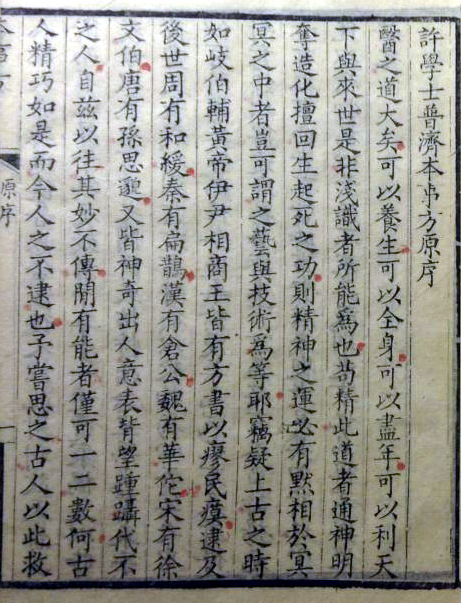 許學士普濟本事方原序
醫之道大矣可以養生可以全身可以盡年可以利天
下與來世是非淺識者所能為也苟精此道者通神明
奪造化擅回生起死之功則精神之運必有默相於冥
冥之中者豈可謂之藝與技術為等耶竊疑上古之時
如岐伯輔黃帝伊尹相商王皆有方書以瘳民瘼逮及
後世周有和緩秦有扁鵲漢有倉公魏有華佗宋有徐
文伯唐有孫思邈又皆神奇出人意表背望踵躡代不
乏人自茲以往其妙不傳閒有能者僅可一二數何古
人精巧如是而今人之不逮也予嘗思之古人以此救
原序